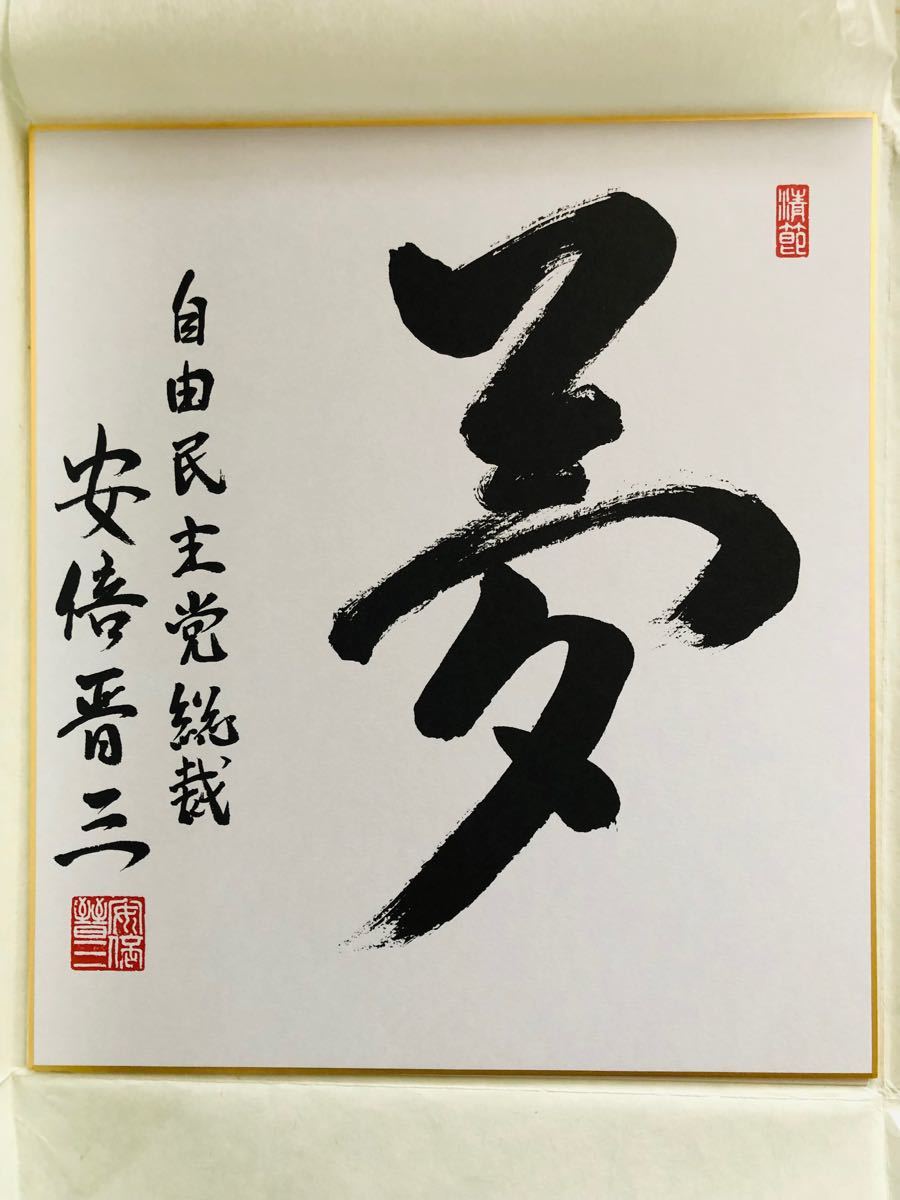 清節
夢
自由民主党総裁
安倍晋三
安倍晋三